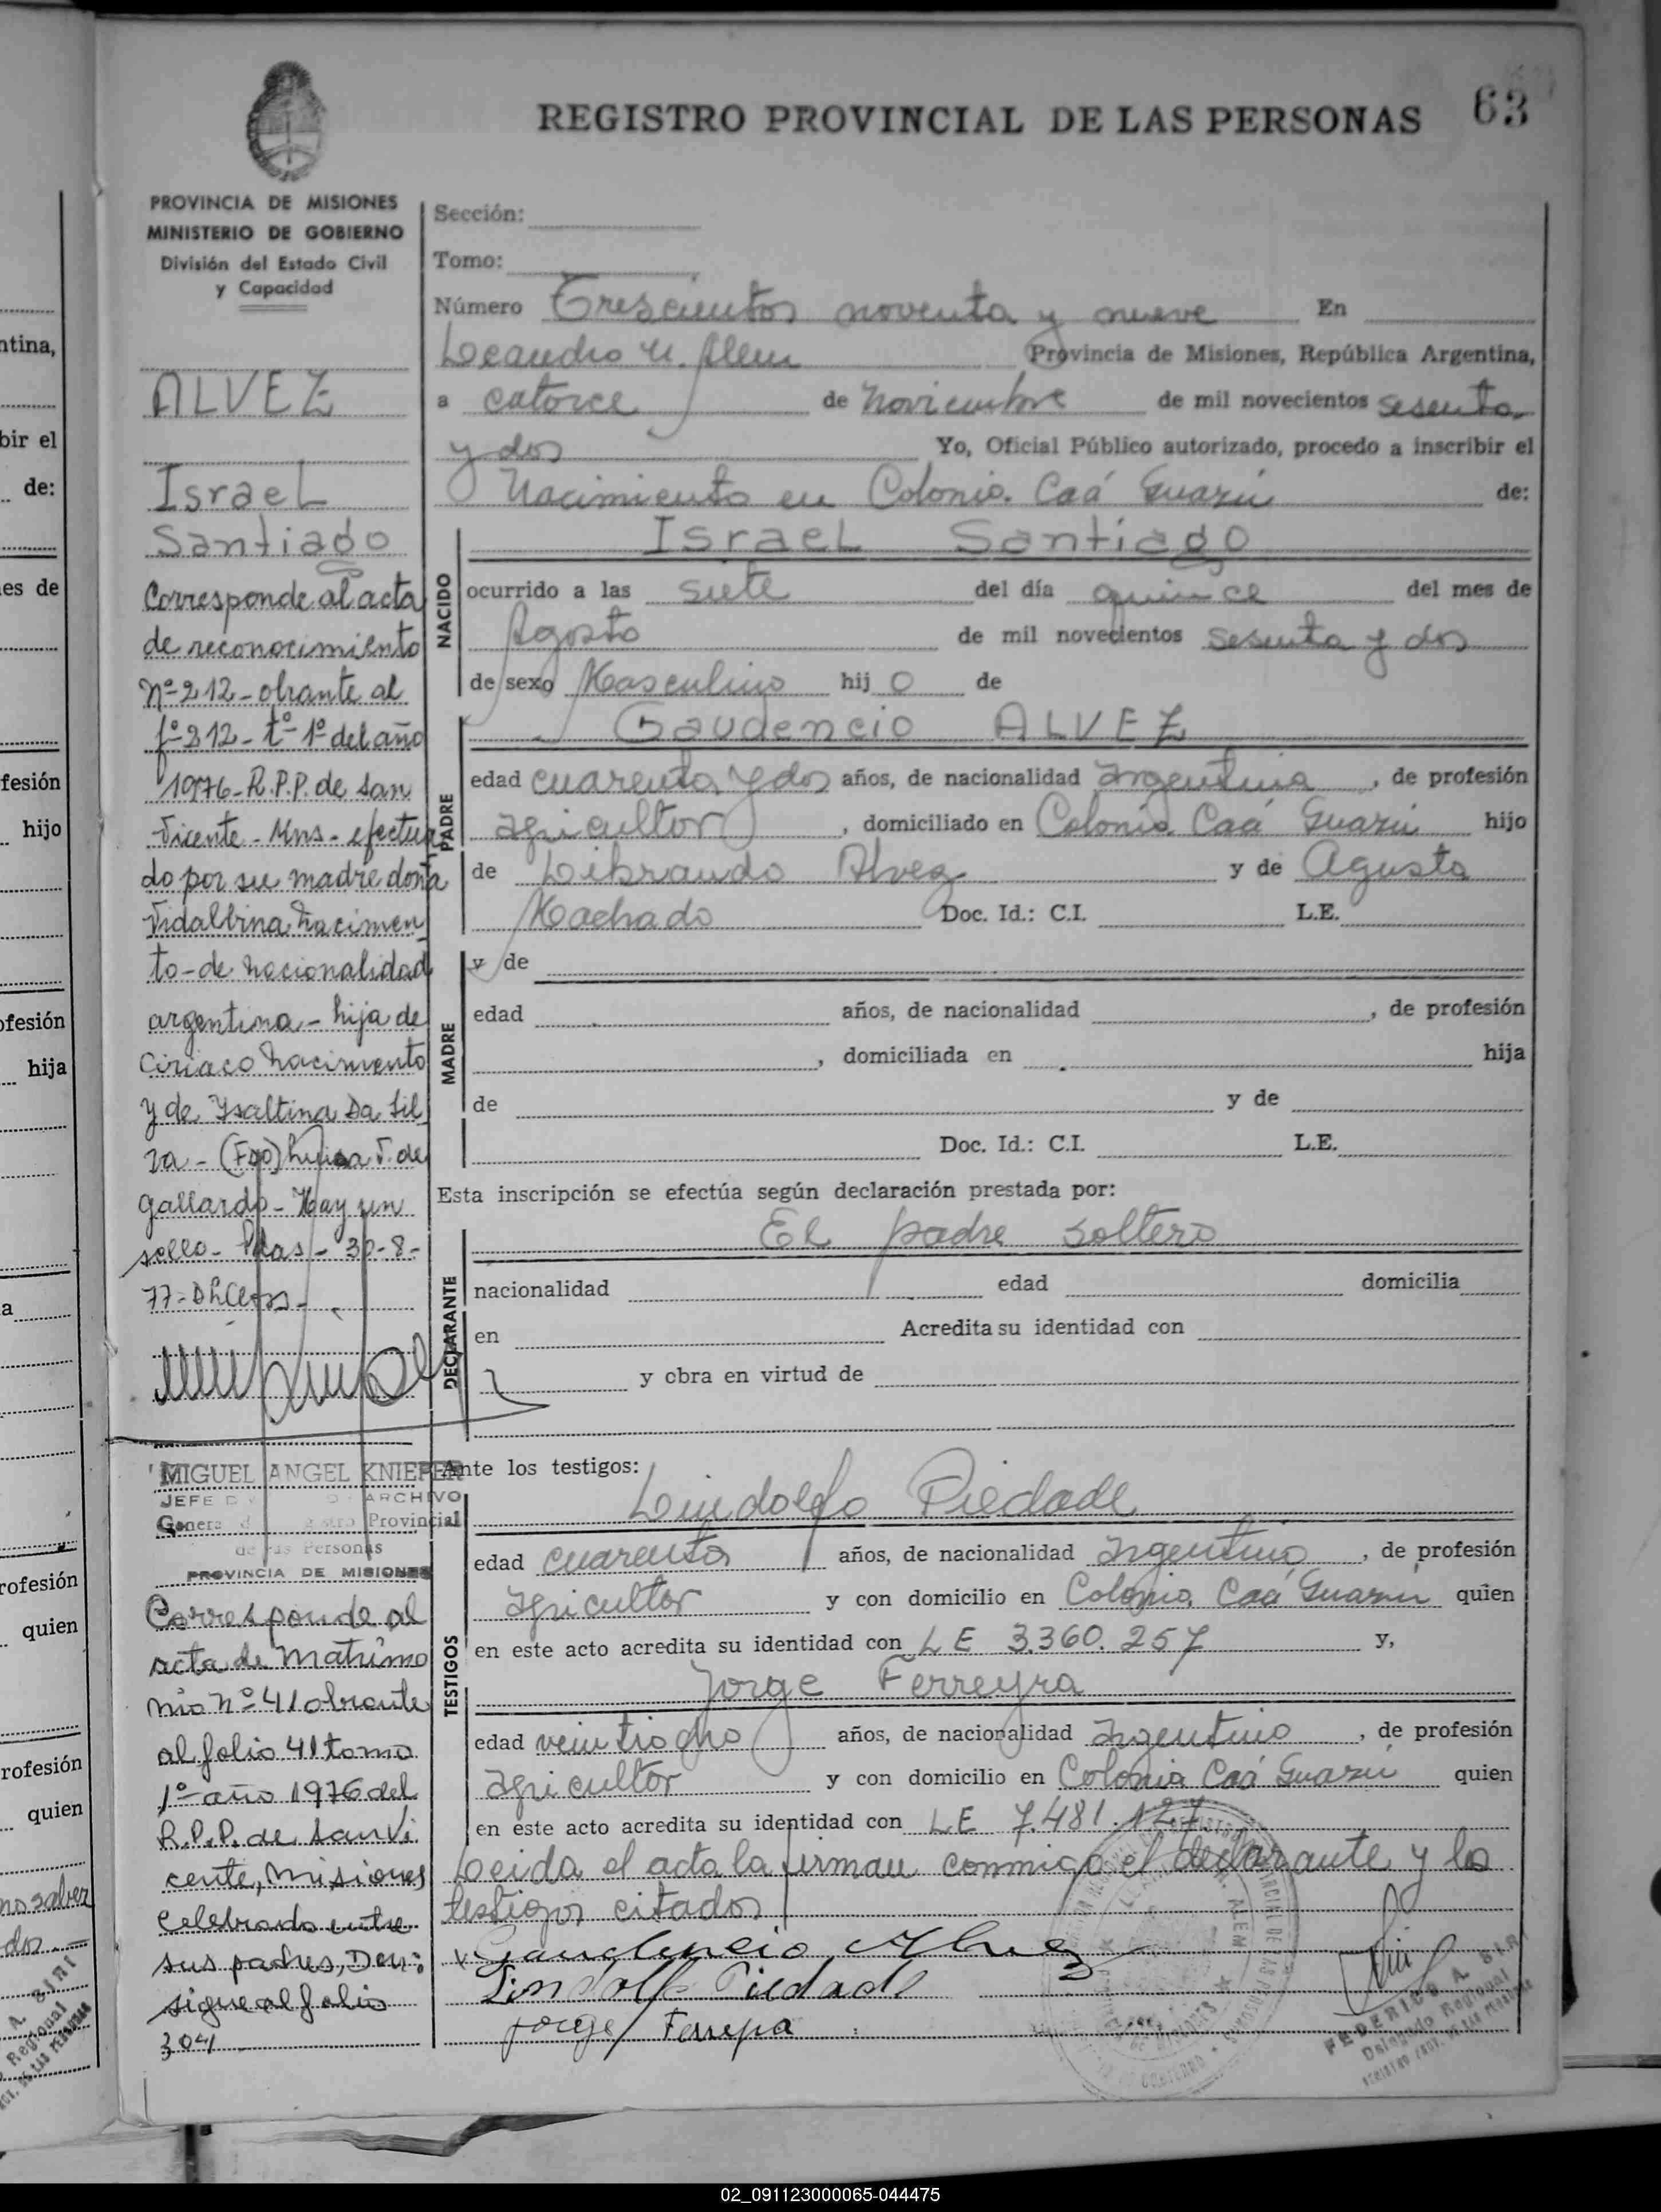 REGISTRO PROVINCIAL DE LAS PERSONAS 63
PROVINCIA DE MISIONES
MINISTERIO DE GOBIERNO
División del Estado Civil
y Capacidad
ALVEZ
Israel
Santiago
Corresponde al acta
de reconocimiento
Nº 212 - obrante al
fº 212 - tº 1º del año
1976 - R.P.P. de San
Vicente - Mns - efectua
do por su madre doña
Vidalbina Nacimen
to - de nacionalidad
argentina - hija de
Ciriaco Nacimento
y de Ysaltina Da Sil
va - (Fdo) V. de
Gallardo - Hay un
sello - Pdas - 30-8-
77 -
MIGUEL ANGEL KNIEPER
JEFE ARCHIVO
Provincial
de las Personas
PROVINCIA DE MISIONES
Corresponde al
acta de Matrimo
nio Nº 41 obrante
al folio 41 tomo
1º año 1976 del
R.P.P. de San Vi
cente, Misiones
celebrado entre
sus padres, Don:
sigue al folio
304
Sección:
Tomo:
Número Trescientos noventa y nueve En
Leandro N. Alem Provincia de Misiones, República Argentina,
a catorce de Noviembre de mil novecientos sesenta
y dos Yo, Oficial Público autorizado, procedo a inscribir el
Nacimiento en Colonia Caá Guazú de:
NACIDO
Israel Santiago
ocurrido a las siete del día quince del mes de
Agosto de mil novecientos sesenta y dos
de sexo Masculino hij o de
PADRE
Gaudencio ALVEZ
edad cuarenta y dos años, de nacionalidad Argentina, de profesión
agricultor, domiciliado en Colonia Caá Guazú hijo
de Librando Alvez y de Agusta
Machado Doc. Id.: C.I. L.E.
MADRE
y de
edad años, de nacionalidad , de profesión
, domiciliada en hija
de y de
Doc. Id.: C.I. L.E.
Esta inscripción se efectúa según declaración prestada por:
DECLARANTE
El padre soltero
nacionalidad edad domicilia
en Acredita su identidad con
y obra en virtud de
Ante los testigos:
TESTIGOS
Lindolfo Piedade
edad cuarenta años, de nacionalidad Argentino, de profesión
agricultor y con domicilio en Colonia Caá Guazú quien
en este acto acredita su identidad con LE 3.360.257 y,
Jorge Ferreyra
edad veintiocho años, de nacionalidad Argentino, de profesión
agricultor y con domicilio en Colonia Caá Guazú quien
en este acto acredita su identidad con LE 7.481.127
Leida el acta la firman conmigo el declarante y los
testigos citados
Gaudencio Alvez
Lindolfo Piedade
Jorge Ferreyra
FEDERICO A. SIRI
Delegado Regional
02_091123000065-044475